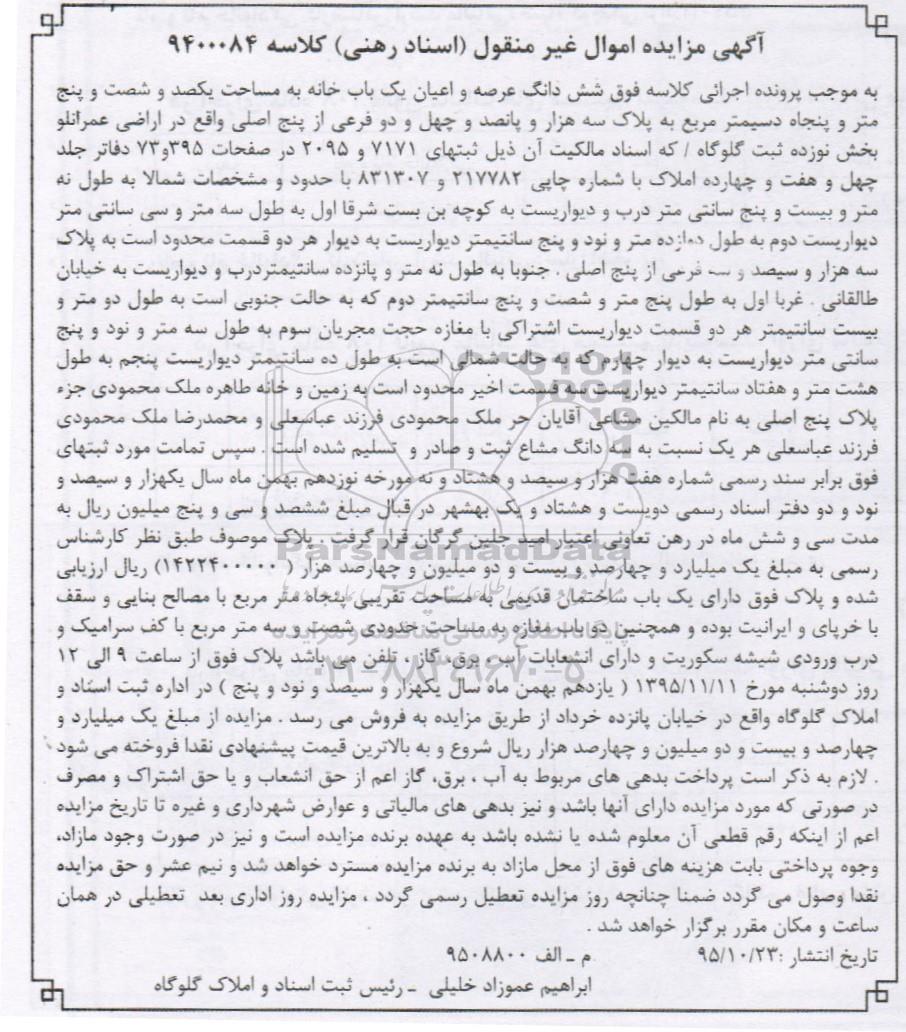 آگهی مزایده اموال غیر منقول (اسناد رهنی) کلاسه ۹۴۰۰۰۸۴
به موجب پرونده اجرائی کلاسه فوق شش دانگ عرصه و اعیان یک باب خانه به مساحت یکصد و شصت و پنج
متر و پنجاه دسیمتر مربع به پلاک سه هزار و پانصد و چهل و دو فرعی از پنج اصلی واقع در اراضی عمرانلو
بخش نوزده ثبت گلوگاه / که اسناد مالکیت آن ذیل ثبتهای ۷۱۷۱ و ۲۰۹۵ در صفحات ۳۹۵و۷۳ دفاتر جلد
چهل و هفت و چهارده املاک با شماره چاپی ۲۱۷۷۸۲ و ۸۳۱۳۰۷ با حدود و مشخصات شمالا به طول نه
متر و بیست و پنج سانتی متر درب و دیواریست به کوچه بن بست شرقا اول به طول سه متر و سی سانتی متر
دیواریست دوم به طول دوازده متر و نود و پنج سانتیمتر دیواریست به دیوار هر دو قسمت محدود است به پلاک
سه هزار و سیصد و سه فرعی از پنج اصلی . جنوبا به طول نه متر و پانزده سانتیمتردرب و دیواریست به خیابان
طالقانی . غربا اول به طول پنج متر و شصت و پنج سانتیمتر دوم که به حالت جنوبی است به طول دو متر و
بیست سانتیمتر هر دو قسمت دیواریست اشتراکی با مغازه حجت مجریان سوم به طول سه متر و نود و پنج
سانتی متر دیواریست به دیوار چهارم که به حالت شمالی است به طول ده سانتیمتر دیواریست پنجم به طول
هشت متر و هفتاد سانتیمتر دیواریست سه قسمت اخیر محدود است به زمین و خانه طاهره ملک محمودی جزء
پلاک پنج اصلی به نام مالکین مشاعی آقایان حر ملک محمودی فرزند عباسعلی و محمدرضا ملک محمودی
فرزند عباسعلی هر یک نسبت به سه دانگ مشاع ثبت و صادر و تسلیم شده است . سپس تمامت مورد ثبتهای
فوق برابر سند رسمی شماره هفت هزار و سیصد و هشتاد و نه مورخه نوزدهم بهمن ماه سال یکهزار و سیصد و
نود و دو دفتر اسناد رسمی دویست و هشتاد و یک بهشهر در قبال مبلغ ششصد و سی و پنج میلیون ریال به
مدت سی و شش ماه در رهن تعاونی اعتبار امید جلین گرگان قرار گرفت . پلاک موصوف طبق نظر کارشناس
رسمی به مبلغ یک میلیارد و چهارصد و بیست و دو میلیون و چهارصد هزار ( ۱۴۲۲۴۰۰۰۰۰) ریال ارزیابی
شده و پلاک فوق دارای یک باب ساختمان قدیمی به مساحت تقریبی پنجاه متر مربع با مصالح بنایی و سقف
با خرپای و ایرانیت بوده و همچنین دو باب مغازه به مساحت حدودی شصت و سه متر مربع با کف سرامیک و
درب ورودی شیشه سکوریت و دارای انشعابات آب ، برق، گاز ، تلفن می باشد پلاک فوق از ساعت ۹ الی ۱۲
روز دوشنبه مورخ ۱۳۹۵/۱۱/۱۱ ( یازدهم بهمن ماه سال یکهزار و سیصد و نود و پنج ) در اداره ثبت اسناد و
املاک گلوگاه واقع در خیابان پانزده خرداد از طریق مزایده به فروش می رسد . مزایده از مبلغ یک میلیارد و
چهارصد و بیست و دو میلیون و چهارصد هزار ریال شروع و به بالاترین قیمت پیشنهادی نقدا فروخته می شود
. لازم به ذکر است پرداخت بدهی های مربوط به آب ، برق، گاز اعم از حق انشعاب و یا حق اشتراک و مصرف
در صورتی که مورد مزایده دارای آنها باشد و نیز بدهی های مالیاتی و عوارض شهرداری و غیره تا تاریخ مزایده
اعم از اینکه رقم قطعی آن معلوم شده یا نشده باشد به عهده برنده مزایده است و نیز در صورت وجود مازاد،
وجوه پرداختی بابت هزینه های فوق از محل مازاد به برنده مزایده مسترد خواهد شد و نیم عشر و حق مزایده
نقدا وصول می گردد ضمنا چنانچه روز مزایده تعطیل رسمی گردد ، مزایده روز اداری بعد تعطیلی در همان
ساعت و مکان مقرر برگزار خواهد شد .
تاریخ انتشار :۹۵/۱۰/۲۳ م ـ الف ۹۵۰۸۸۰۰
ابراهیم عموزاد خلیلی ـ رئیس ثبت اسناد و املاک گلوگاه
ParsNamadData
پایگاه اطلاع رسانی مناقصه و مزایده
۰۲۱-۸۸۳۴۹۶۷۰-۵